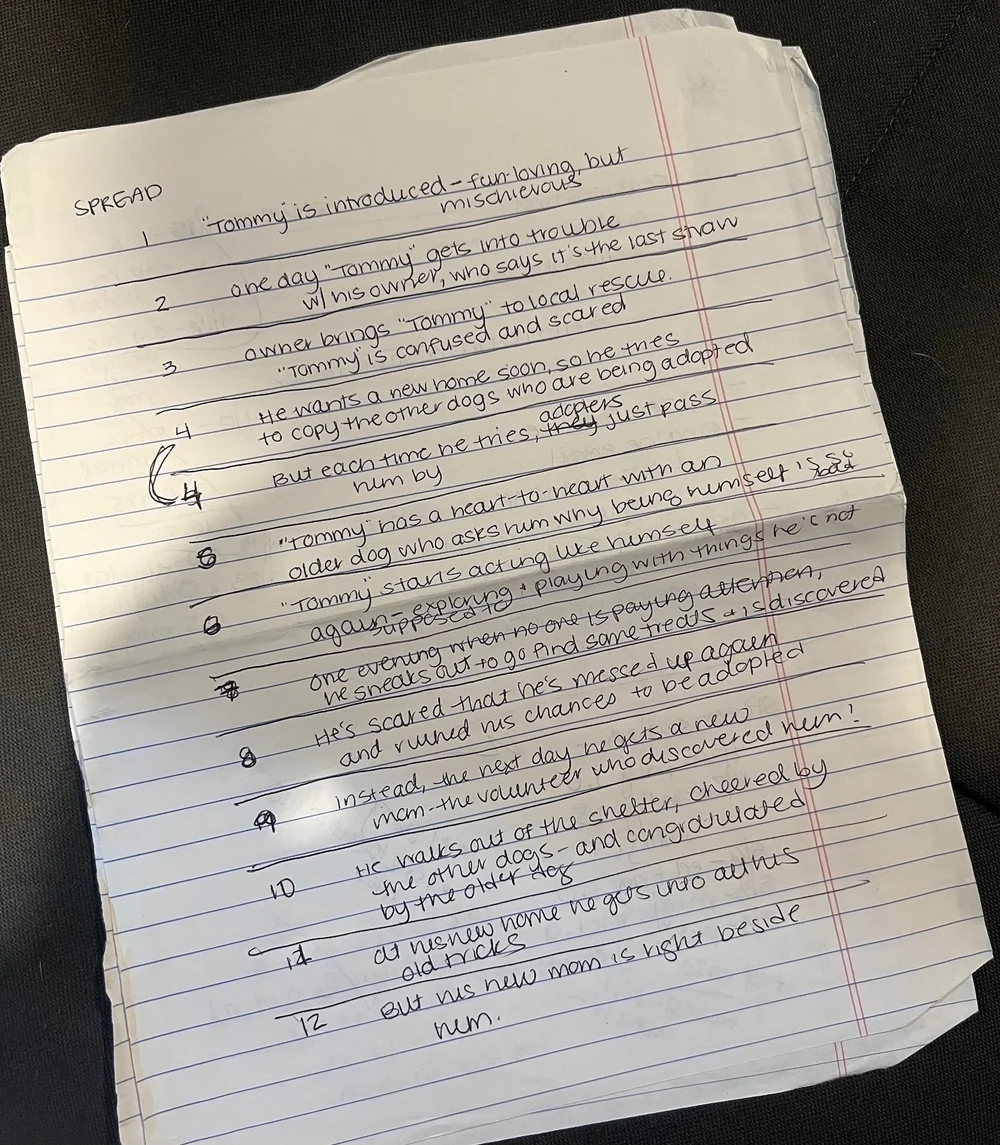 SPREAD
1 "Tommy" is introduced - fun-loving, but
mischievous
2 one day "Tommy" gets into trouble
w/ his owner, who says it's the last straw
3 owner brings "Tommy" to local rescue.
"Tommy" is confused and scared
4 He wants a new home soon, so he tries
to copy the other dogs who are being adopted
4 But each time he tries, they adopters just pass
him by
5 "Tommy" has a heart-to-heart with an
older dog who asks him why being himself is so
6 "Tommy" starts acting like himself
again - exploring + playing with things he's not
supposed to
7 one evening when no one is paying attention,
he sneaks out to go find some treats + is discovered
8 He's scared that he's messed up again
and ruined his chances to be adopted
9 Instead, the next day he gets a new
mom - the volunteer who discovered him!
10 He walks out of the shelter, cheered by
the other dogs - and congratulated
by the older dog
11 at his new home he gets into all his
old tricks
12 But his new mom is right beside
him.